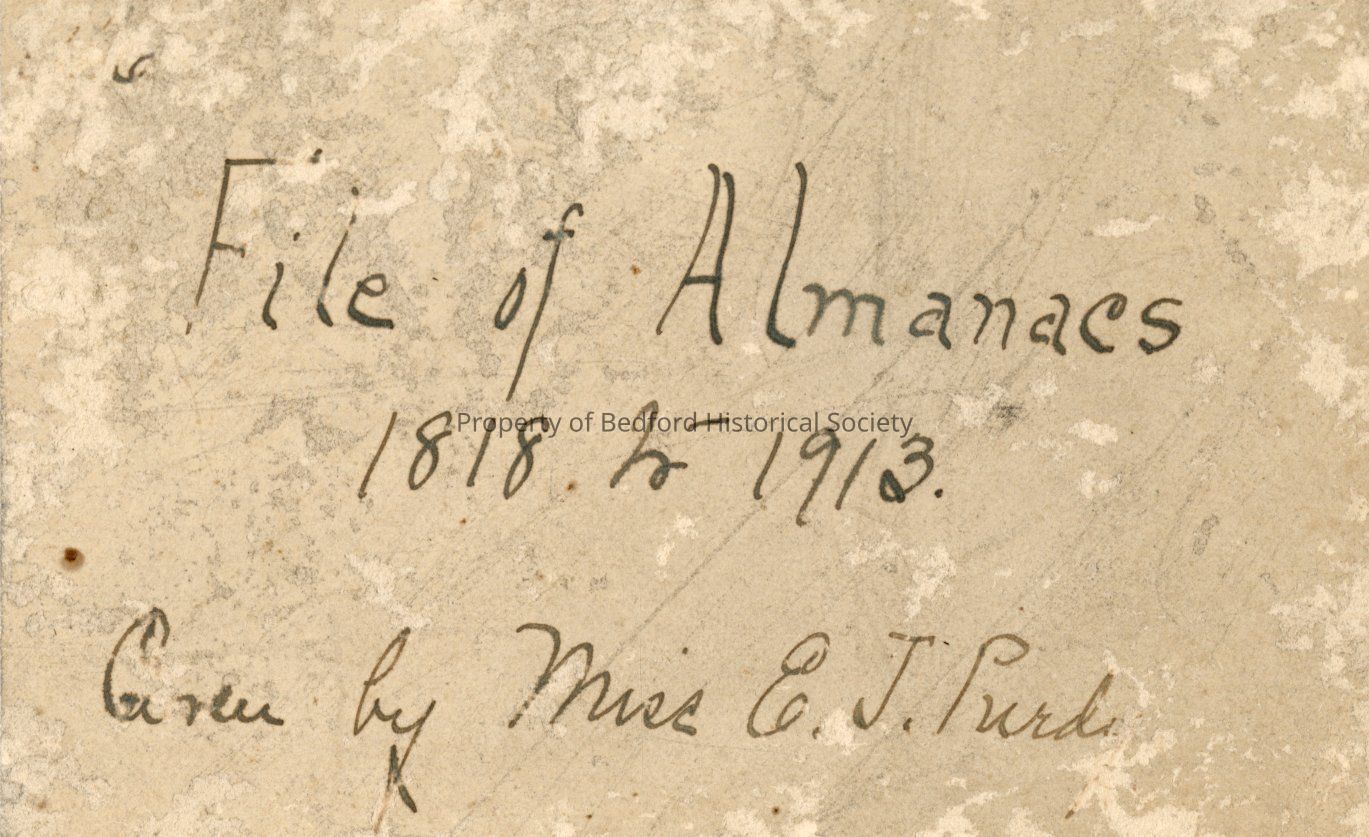 File of Almanacs
Property of Bedford Historical Society
1818 to 1913.
Given by Miss E. J.